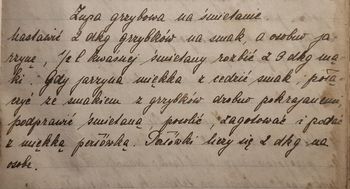 Zupa grzybowa na śmietanie.
Nastawić 2 dkg grzybków na smak a osobno ja-
rzynę, ¼ l kwaśnej śmietany rozbić z 3 dkg mą-
ki. Gdy jarzyna miękka z cedzić smak, połą-
czyć ze smakiem z grzybków drobno pokrajanemi,
podprawić śmietaną, posolić, zagotować i podać
z miękką perłówką. Perłówki liczy się 2 dkg na
osobę.